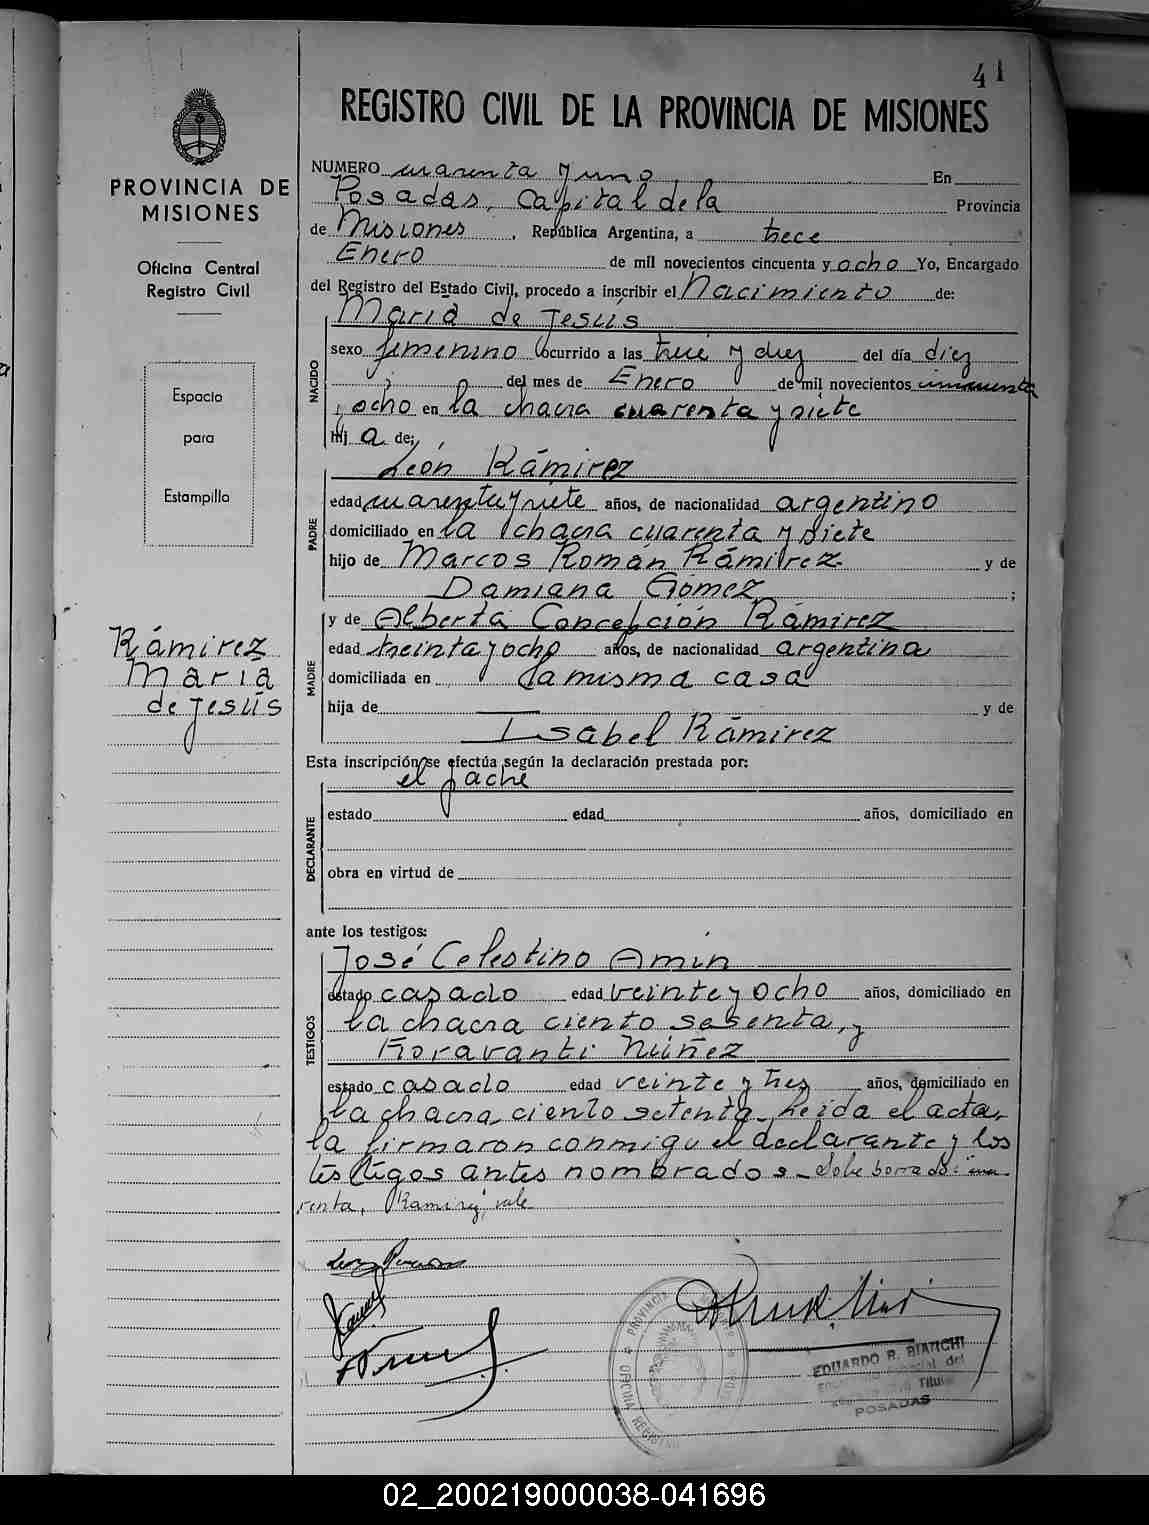 41
REGISTRO CIVIL DE LA PROVINCIA DE MISIONES
PROVINCIA DE
MISIONES
Oficina Central
Registro Civil
Espacio
para
Estampilla
Rámirez
María
de Jesús
NUMERO cuarenta y uno En
Posadas, Capital de la Provincia
de Misiones, República Argentina, a trece
Enero de mil novecientos cincuenta y ocho Yo, Encargado
del Registro del Estado Civil, procedo a inscribir el Nacimiento de:
María de Jesús
NACIDO
sexo femenino ocurrido a las trece y diez del día diez
del mes de Enero de mil novecientos cincuenta
y ocho en la chacra cuarenta y siete
hij a de:
León Rámirez
PADRE
edad cuarenta y siete años, de nacionalidad argentino
domiciliado en la chacra cuarenta y siete
hijo de Marcos Román Rámirez y de
Damiana Gómez ;
y de Alberta Concepción Rámirez
MADRE
edad treinta y ocho años, de nacionalidad argentina
domiciliada en la misma casa
hija de y de
Isabel Rámirez
Esta inscripción se efectúa según la declaración prestada por:
el padre
DECLARANTE
estado edad años, domiciliado en
obra en virtud de
ante los testigos:
José Celestino Amin
TESTIGOS
estado casado edad veinte y ocho años, domiciliado en
la chacra ciento sesenta, y
Fioravanti Núñez
estado casado edad veinte y tres años, domiciliado en
la chacra ciento setenta. Leida el acta,
la firmaron conmigo el declarante y los
testigos antes nombrados - Sobre borrado: "cua-
renta, Ramirez, vale
EDUARDO R. BIANCHI
Titular
POSADAS
02_200219000038-041696